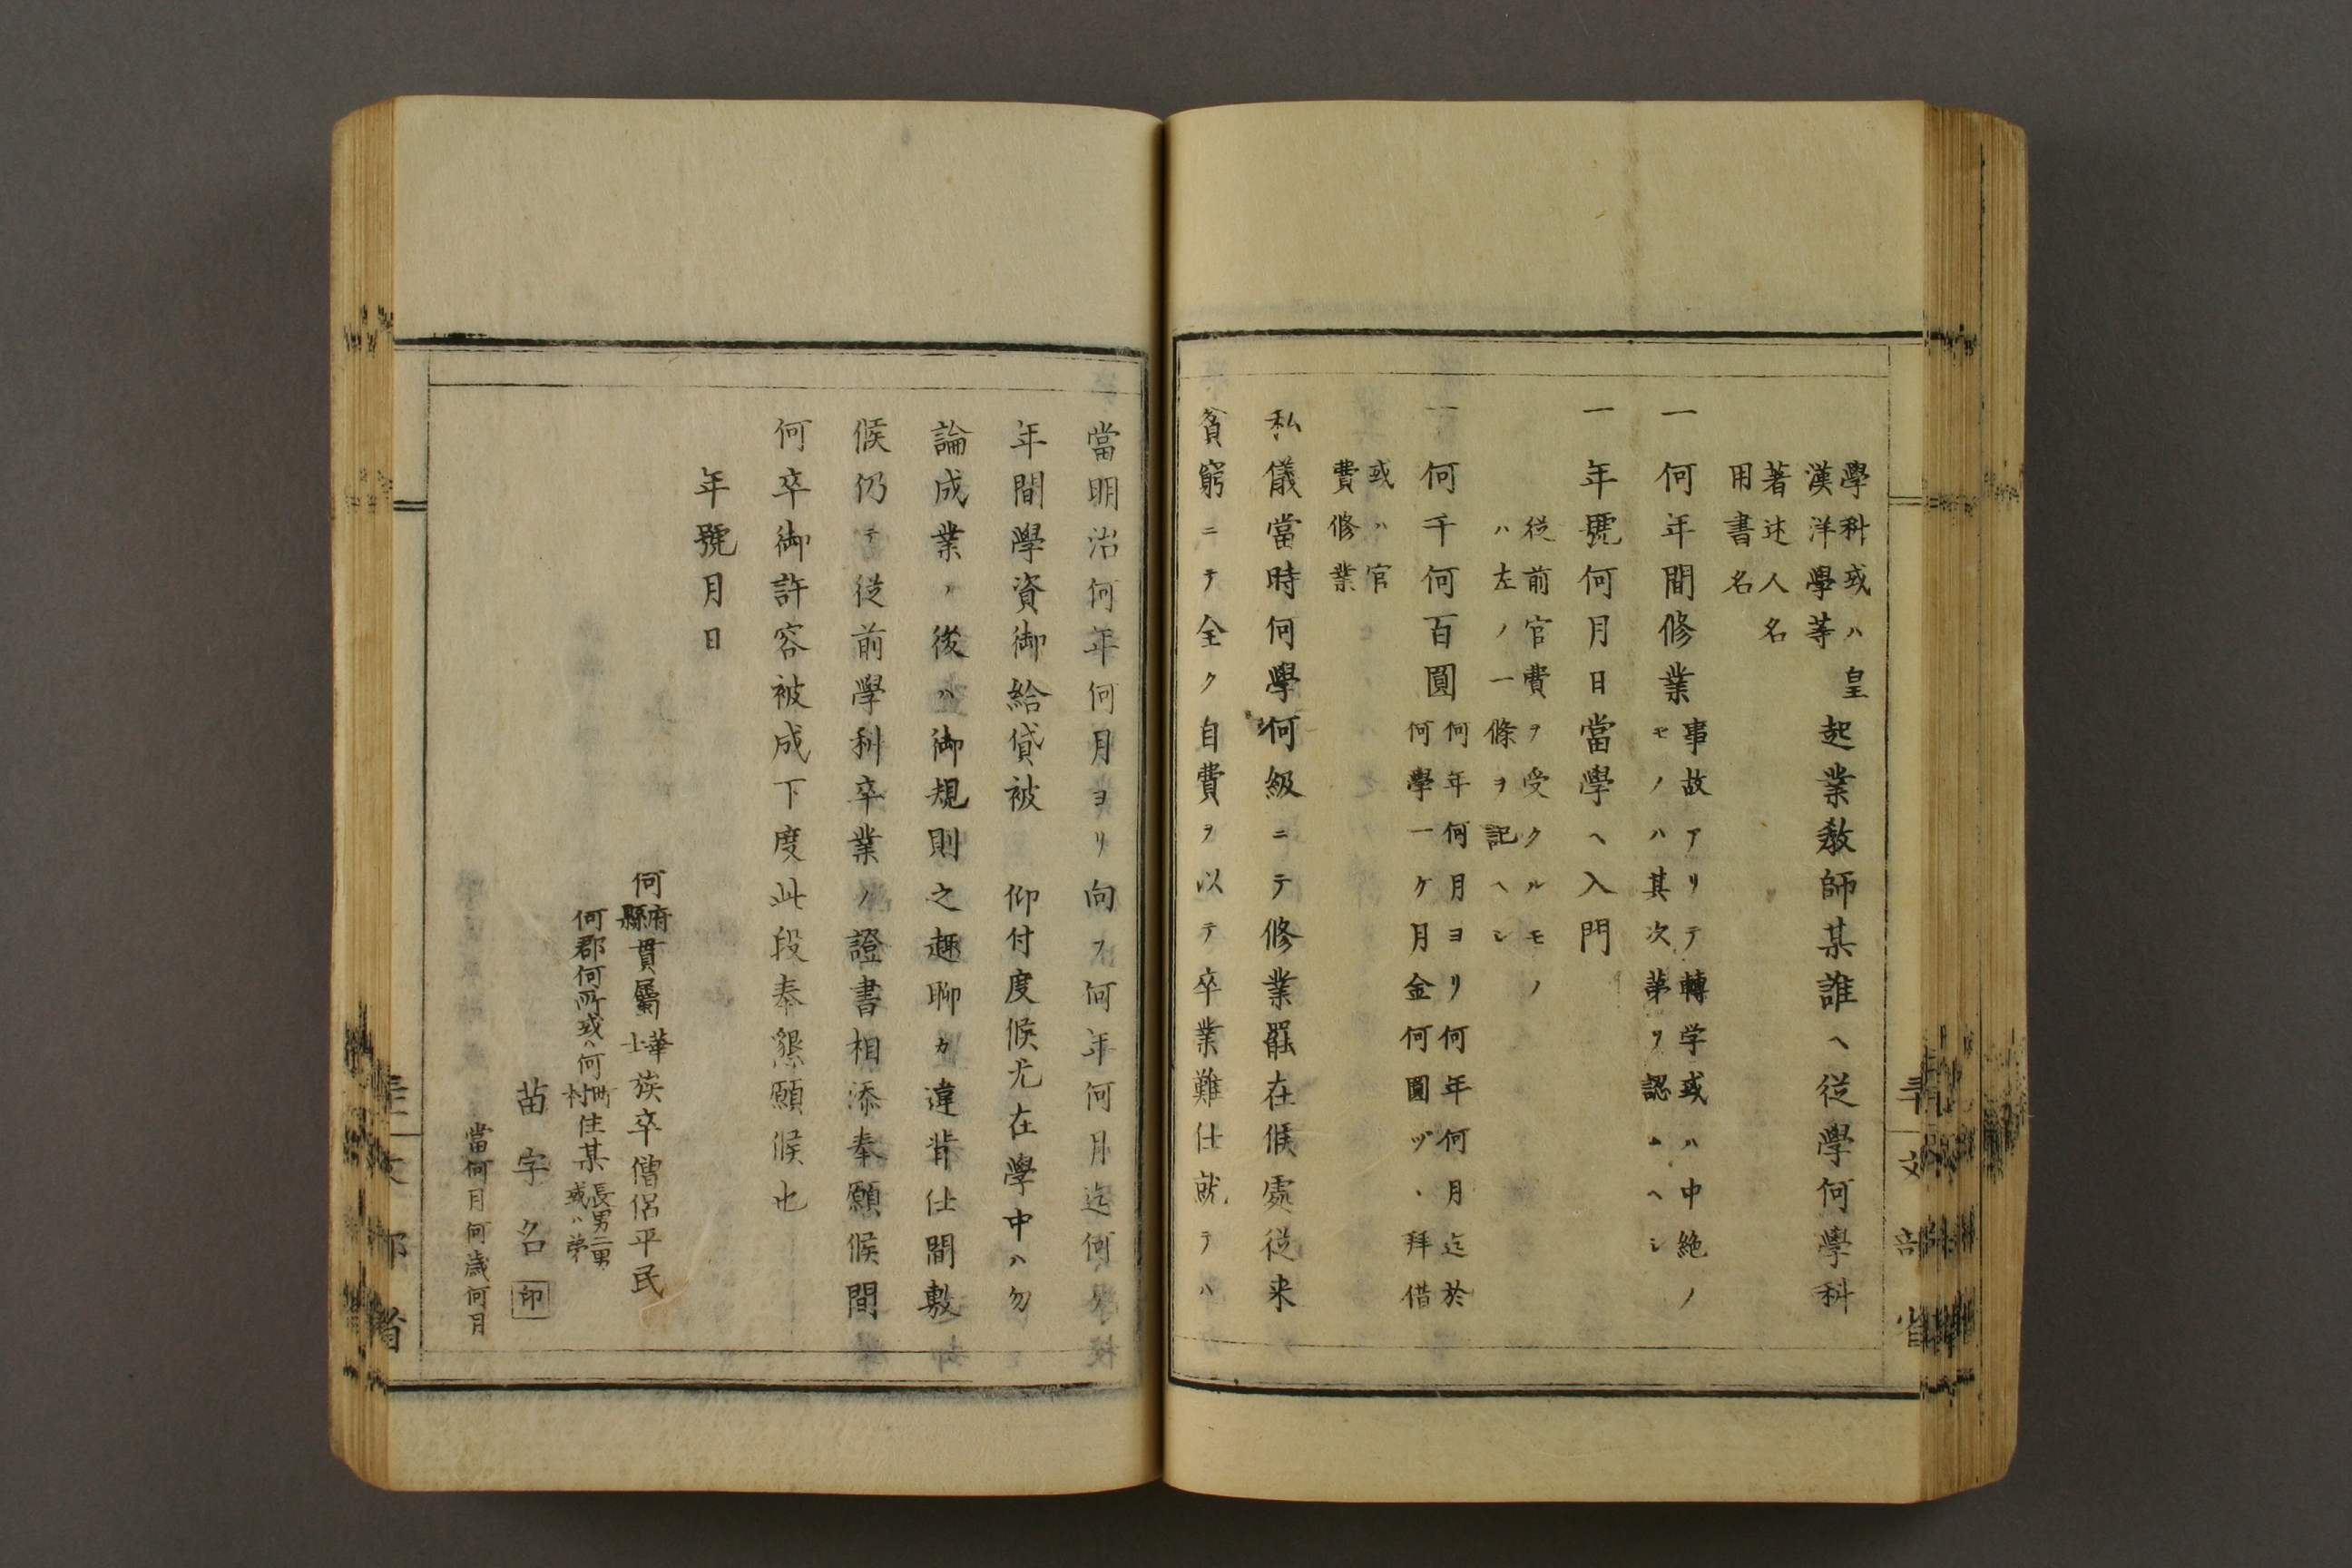 學科或ハ皇
漢洋學等
起業敎師某誰ヘ從學何學科
著述人名
用書名
一何年間修業
事故アリテ轉学或ハ中絶ノ
モノハ其次第ヲ認ムヘシ
一年號何月日當學ヘ入門
從前官費ヲ受クルモノ
ハ左ノ一條ヲ記ヘシ
一何千何百圓
何年何月ヨリ何年何月迄於
何學一ケ月金何圓ヅヽ拜借
或ハ官
費修業
私儀當時何學何級ニテ修業罷在候處從来
貧窮ニテ全ク自費ヲ以テ卒業難仕就テハ
當明治何年何月ヨリ向フ何年何月迄何
年間學資御給貸被 仰付度候尤在學中ハ勿
論成業ノ後ハ御規則之趣聊カ違背仕間敷
候仍テ從前學科卒業ノ證書相添奉願候間
何卒御許容被成下度此段奉懇願候也
年號月日
何府縣貫屬華士族卒僧侶平民
何郡何所或ハ何町村住某長男二男或ハ弟
苗字名印
當何月何歳何月
文部省